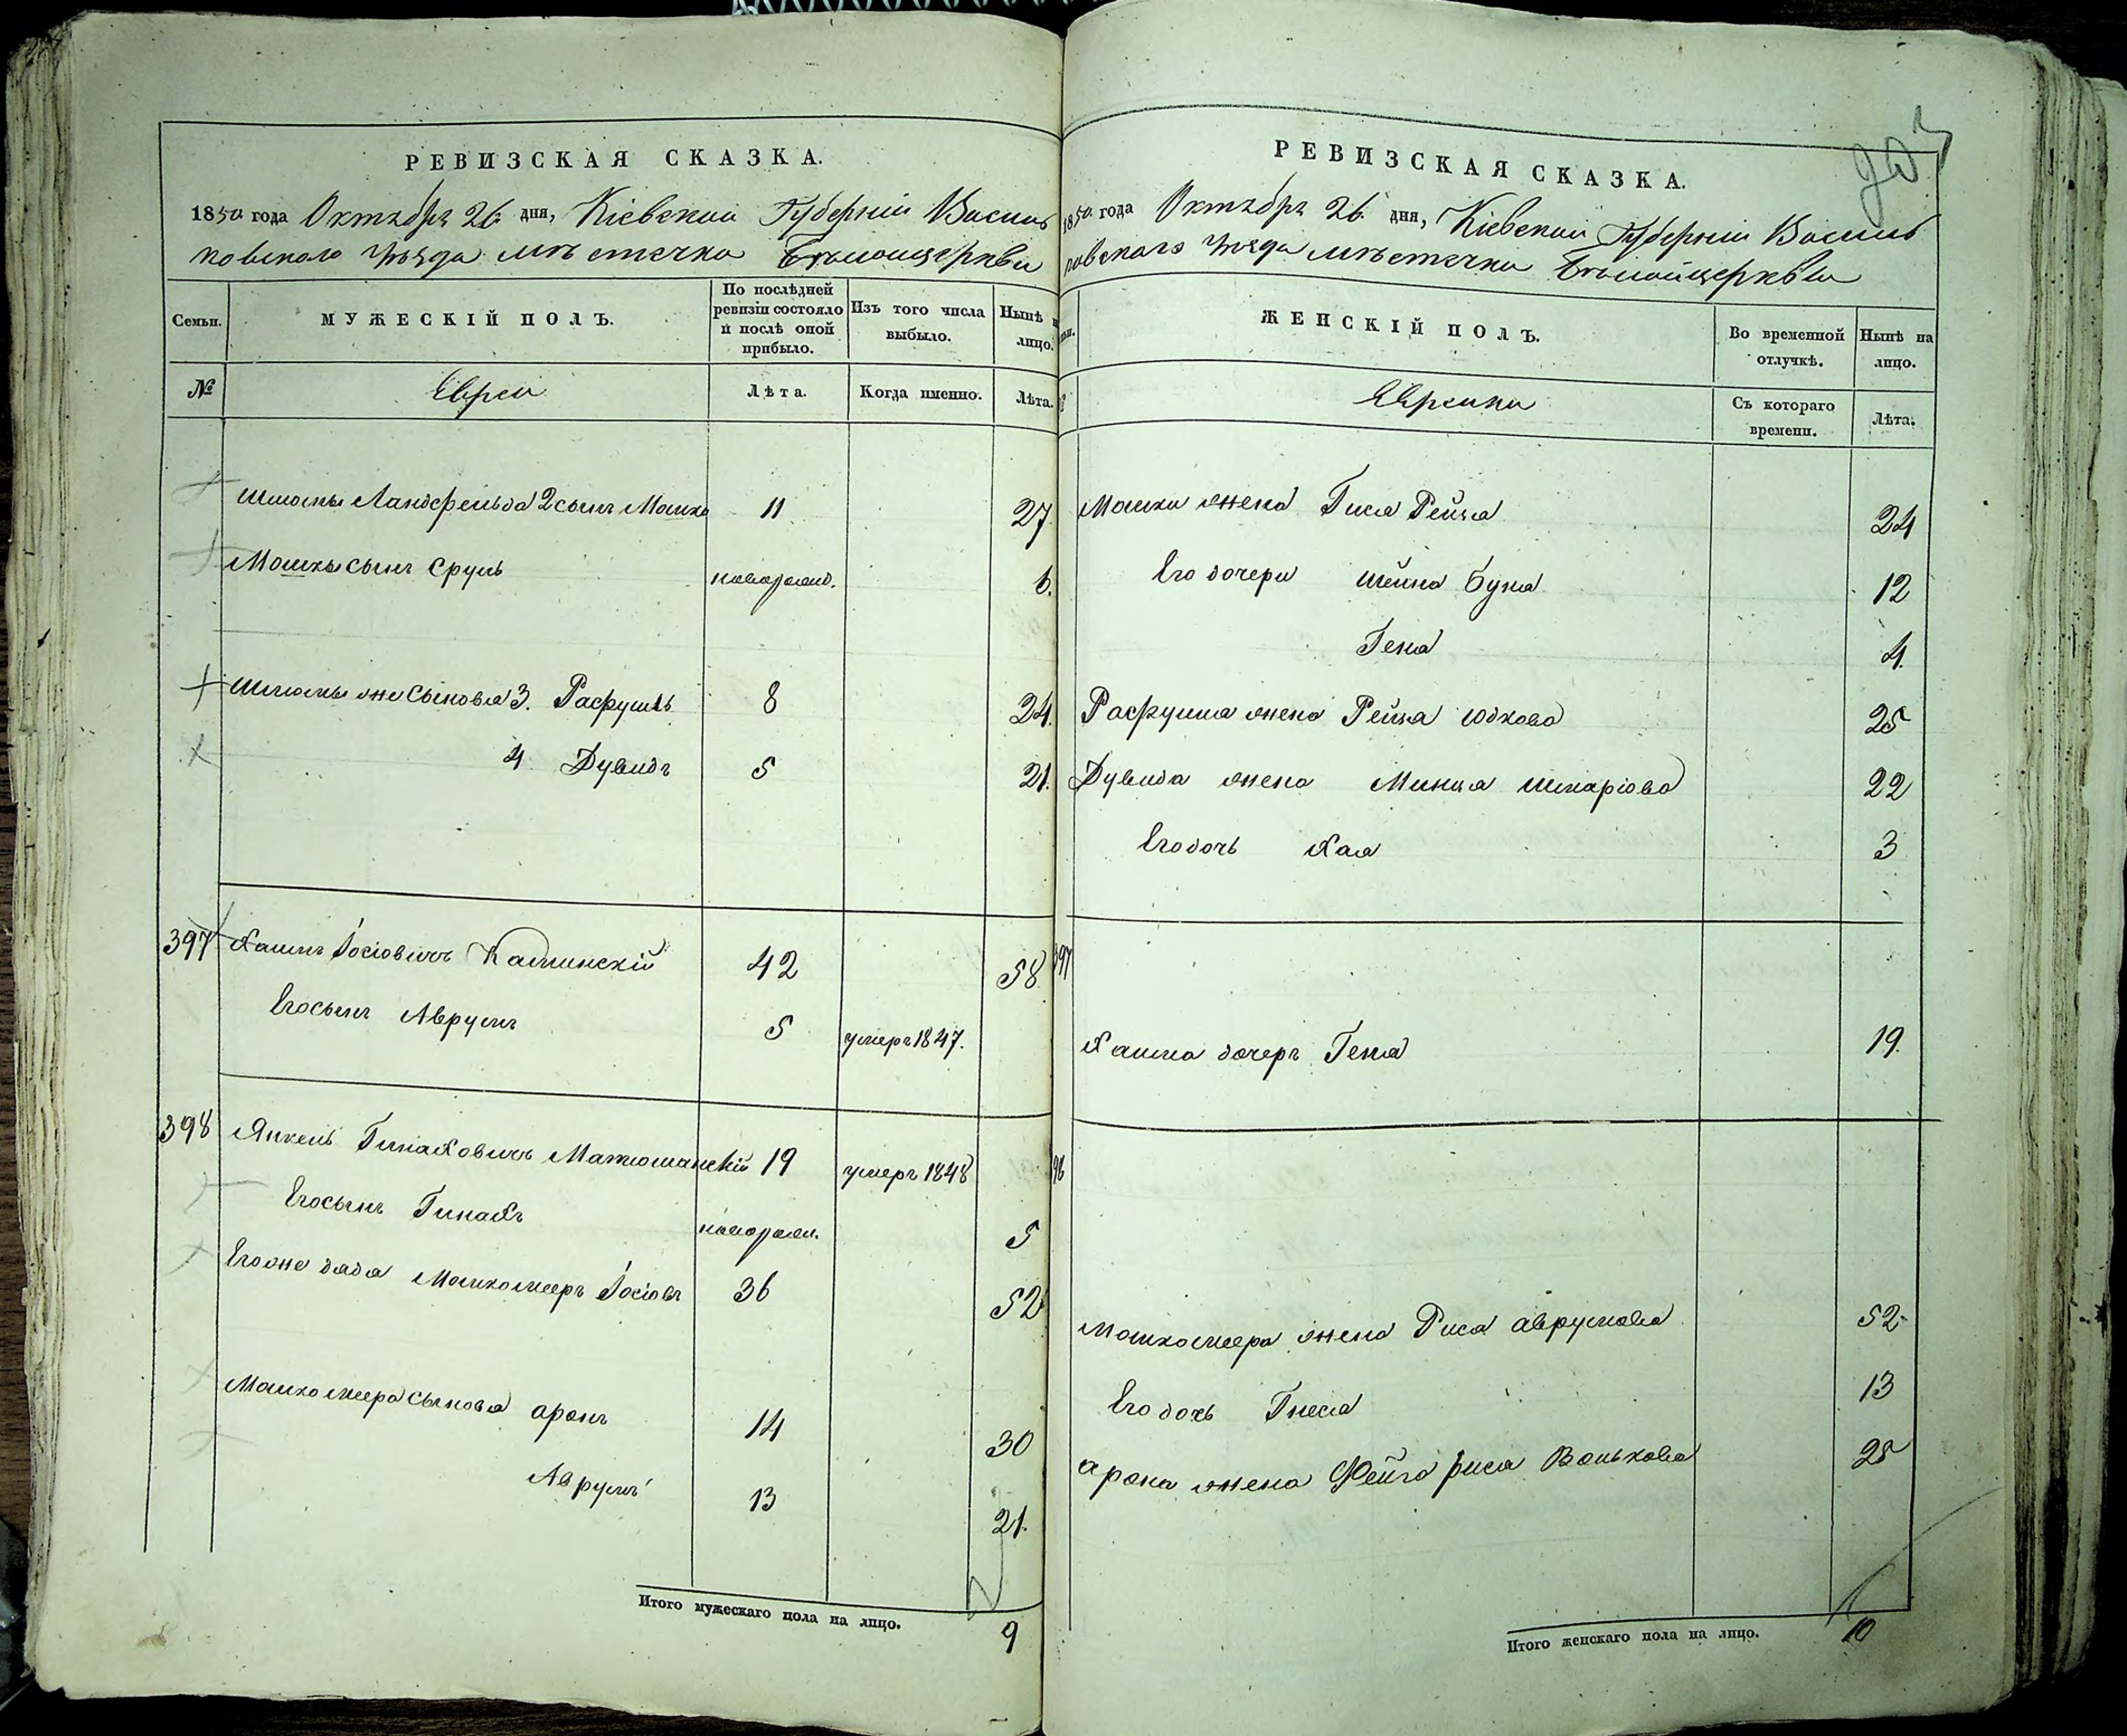 РЕВИЗСКАЯ СКАЗКА.
1850 года Октября 26 дня, Кіевской Губерніи Василь
ковскаго Уѣзда мѣстечка Бѣлойцеркви
Семьи.
МУЖЕСКІЙ ПОЛЪ.
По послѣдней ревизіи состояло и послѣ оной прибыло.
Изъ того числа выбыло.
Нынѣ на лицо.
№
Евреи
Лѣта.
Когда именно.
Лѣта.
Шломы Ландсфельда 2 сынъ Мошко 11 27
Мошки сынъ Сруль новорожд. 6.
Шломы же сыновья 3. Расфушль 8 24.
4 Дувидъ 5 21.
397 Хаимъ Іосіовичъ Каминскій 42 58
Его сынъ Аврумъ 5 умеръ 1847.
398 Янкель Гинаховичъ 19 умеръ 1848
Его сынъ Гинахъ новорожд. 5
Его же дядя Мошкомееръ Іосіовъ 36 52
Мошкомеера сыновья Аронъ 14 30
Аврумъ 13 21.
Итого мужескаго пола на лицо. 9
РЕВИЗСКАЯ СКАЗКА.
1850 года Октября 26 дня, Кіевской Губерніи Василь
ковскаго Уѣзда мѣстечка Бѣлойцеркви
ЖЕНСКІЙ ПОЛЪ.
Во временной отлучкѣ.
Нынѣ на лицо.
Еврейки
Съ котораго времени.
Лѣта.
Мошки жена Гися Рейзя 24
Его дочери Шейна Буня 12
Геня 4.
Расфушля жена Рейзя Юдкова 25
Дувида жена Минця 22
Его дочь Хая 3
397
Хаима дочерь Геня 19.
98
Мошкомеера жена Рися Аврумова 52.
Его дочь Гнеся 13
Арона жена Фейга Рися Волькова 25
Итого женскаго пола на лицо. 10